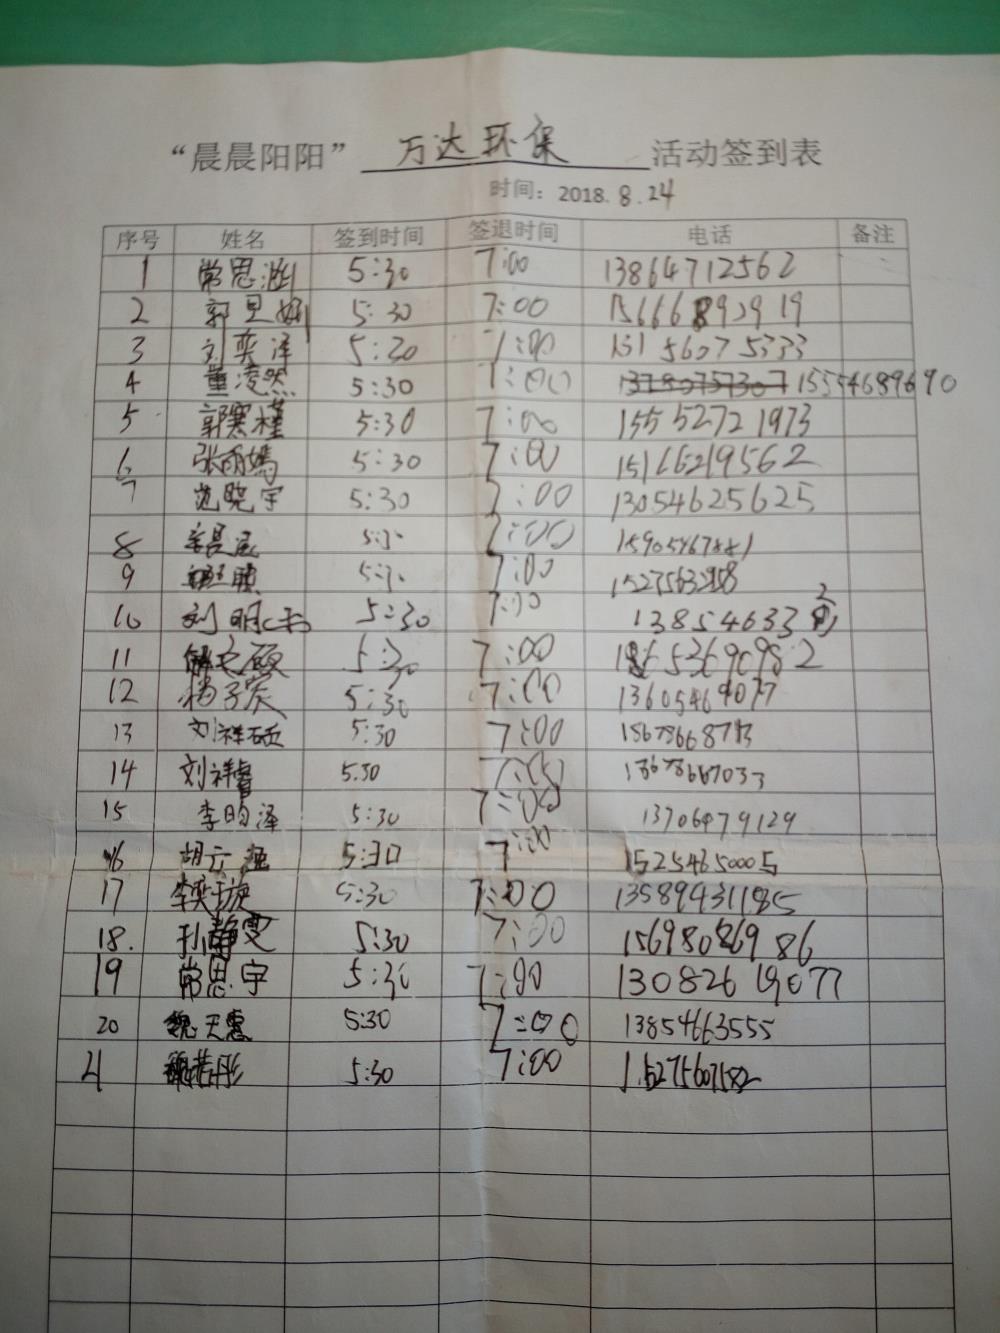 “晨晨阳阳” 万达环保 活动签到表
时间：2018.8.24
序号 姓名 签到时间 签退时间 电话 备注
1 常思渊 5:30 7:00 13864712562
2 郭思娴 5:30 7:00
3 刘奕泽 5:30 7:00 15156075333
4 董凌然 5:30 7:00 13780757307 15554689690
5 郭寒槿 5:30 7:00 15552721973
6 张雨嫣 5:30 7:00 15166219562
7 范晓宇 5:30 7:00 13054625625
8 5:30 7:00 15905467881
9 5:30 7:00
10 刘明 5:30 7:00
11 解文硕 5:30 7:00
12 杨子宸 5:30 7:00 13605469077
13 刘祥硕 5:30 7:00
14 刘祥睿 5.30 7:00
15 李昀泽 5:30 7:00 13706479129
16 胡 5:30 7:00 15254650005
17 李奕璇 5:30 7:00 13589943185
18. 孙静雯 5:30 7:00 15698086986
19 常思宇 5:30 7:00 13082619077
20 魏天惠 5:30 7:00 13854663555
21 5:30 7:00 15275607582